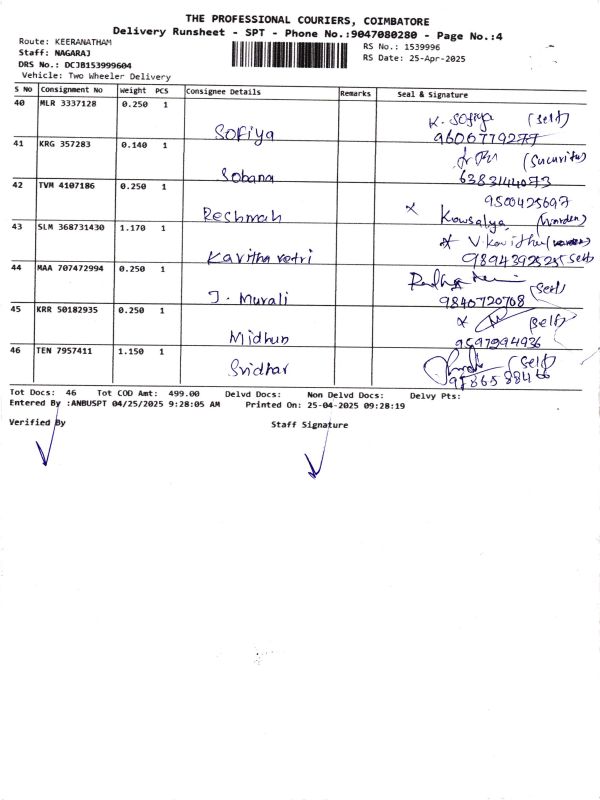 THE PROFESSIONAL COURIERS, COIMBATORE
Delivery Runsheet - SPT - Phone No.:9047080280 - Page No.:4
Route: KEERANATHAM
Staff: NAGARAJ
DRS No.: DCJB153999604
Vehicle: Two Wheeler Delivery
RS No.: 1539996
RS Date: 25-Apr-2025
S No Consignment No Weight PCS Consignee Details Remarks Seal & Signature
40 MLR 3337128 0.250 1 Sofiya K. Sofiya (Self)
9606779277
41 KRG 357283 0.140 1 Sobana (Sucuritu)
6383144073
42 TVM 4107186 0.250 1 Reshmah 9500425697
Kowsalya (warden)
43 SLM 368731430 1.170 1 Kavitha vetri V Kavitha (warden)
9894392525 Self
44 MAA 707472994 0.250 1 J. Murali (Self)
9840720708
45 KRR 50182935 0.250 1 Midhun (Self)
9597994936
46 TEN 7957411 1.150 1 Sridhar (Self)
Tot Docs: 46 Tot COD Amt: 499.00 Delvd Docs: Non Delvd Docs: Delvy Pts:
Entered By :ANBUSPT 04/25/2025 9:28:05 AM Printed On: 25-04-2025 09:28:19
Verified By Staff Signature